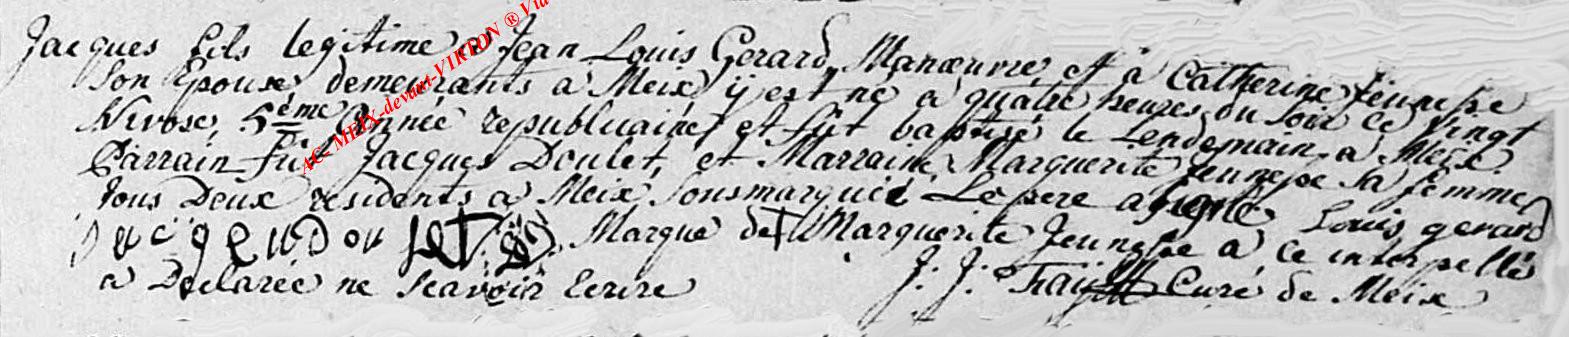 Jacques fils legitime a Jean Louis Gerard Manœuvre, et à Catherine Jeunesse
Son Epouse, demeurants a Meix, ÿ est né a quatre heures du Soir ce Vingt
Nivose, 5ème Année republicaine, et fût baptisé le Lendemain a Meix.
Parrain fût Jacques Doulet, et Marraine Marguerite Jeunesse sa femme,
tous Deux residents a Meix Sousmarquées. Le pere a signé Louis gerard
Marque de † Marguerite Jeunesse a ce interpellée
a Declarée ne Scavoir Ecrire J. J. Curé de Meix
AC. MEIX-devant-VIRTON ® Via